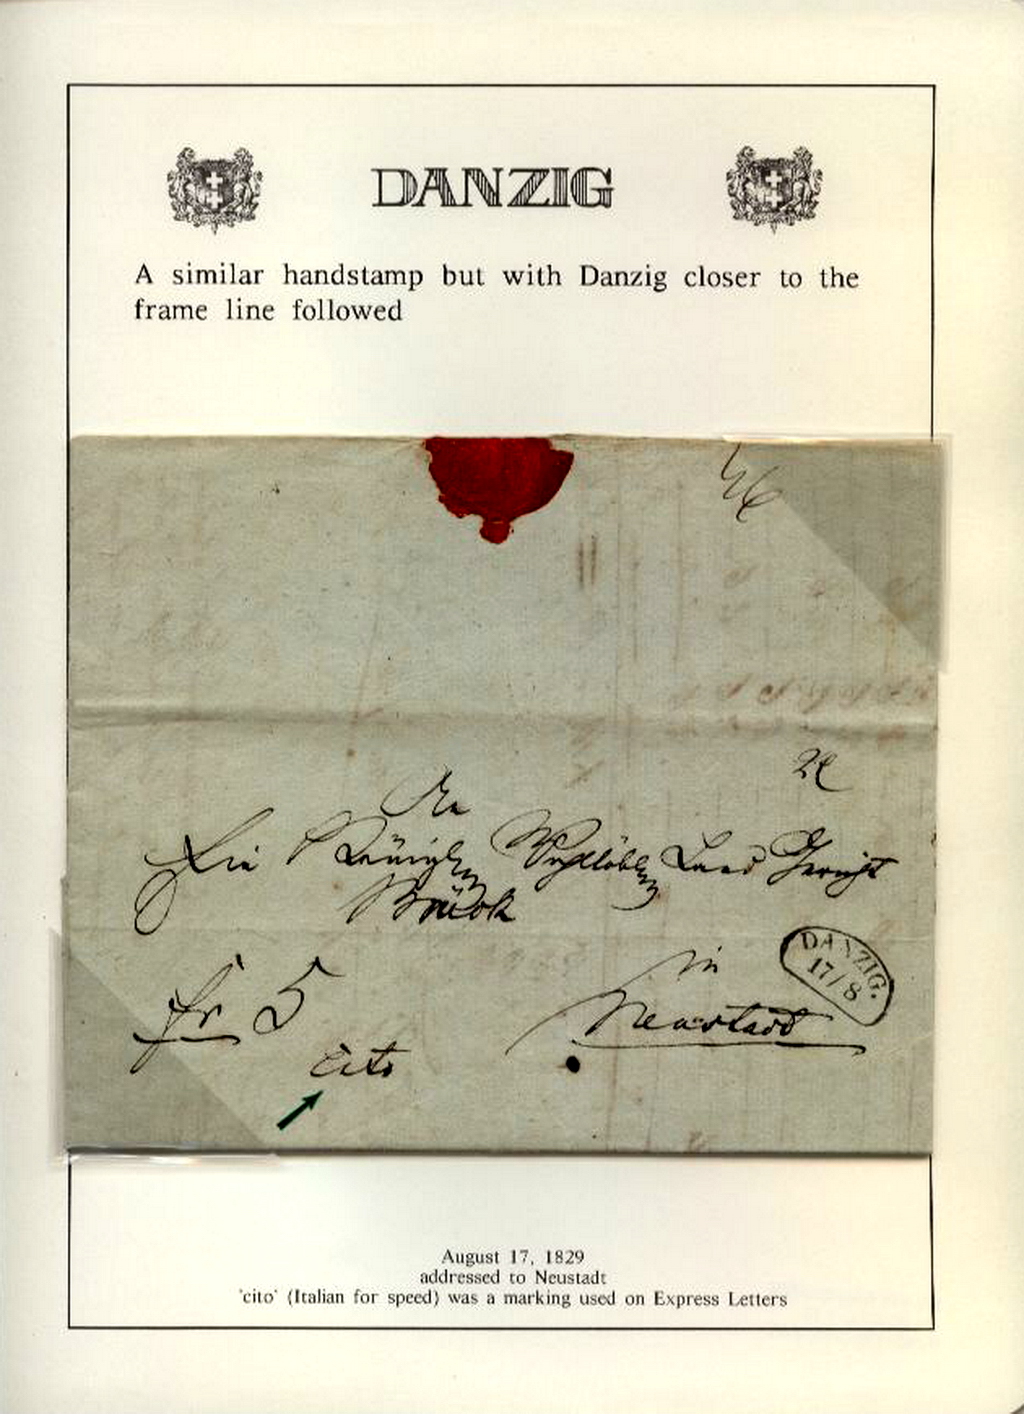 DANZIG
A similar handstamp but with Danzig closer to the
frame line followed
An
Die Königl Wohllöbl Land Gericht
in
DANZIG.
17/8
fr 5
Neustadt
cito
August 17, 1829
addressed to Neustadt
'cito' (Italian for speed) was a marking used on Express Letters